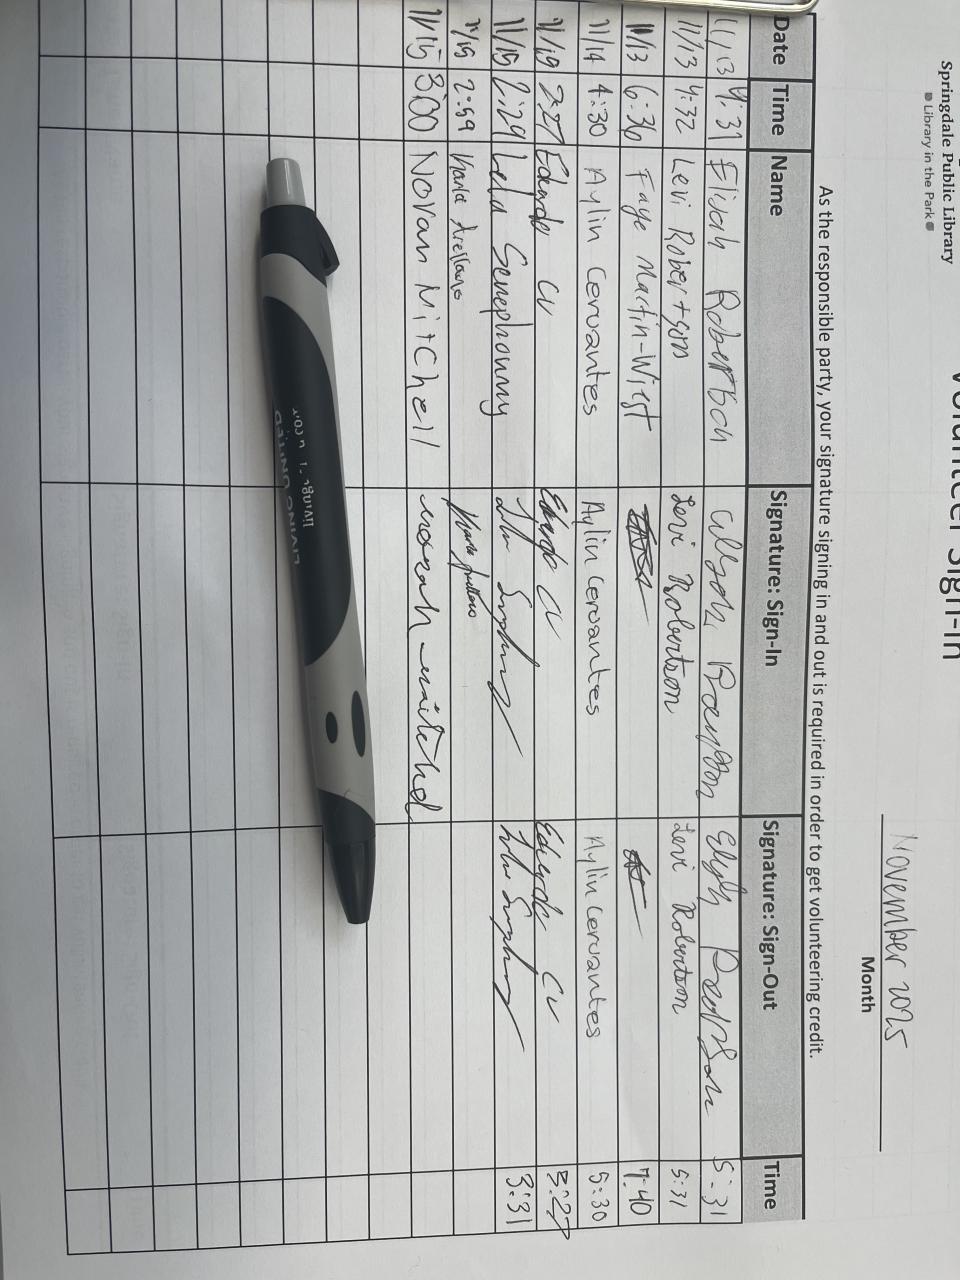 Springdale Public Library
Library in the Park
Volunteer Sign-In
November 2025
Month
As the responsible party, your signature signing in and out is required in order to get volunteering credit.
Date Time Name Signature: Sign-In Signature: Sign-Out Time
11/13 4:31 Elijah Robertson 5:31
11/13 4:32 Levi Robertson Levi Robertson Levi Robertson 5:31
11/13 6:36 Faye Martin-Wirst 7:40
11/14 4:30 Aylin Cervantes Aylin Cervantes Aylin Cervantes 5:30
11/19 2:27 CV CV CV 3:27
11/15 2:29 Lela Senephoumy 3:31
11/15 2:59 Karla Arellano Karla Arellano
11/15 300 Novah Mitchell novah mitchel
LIVING UNITED